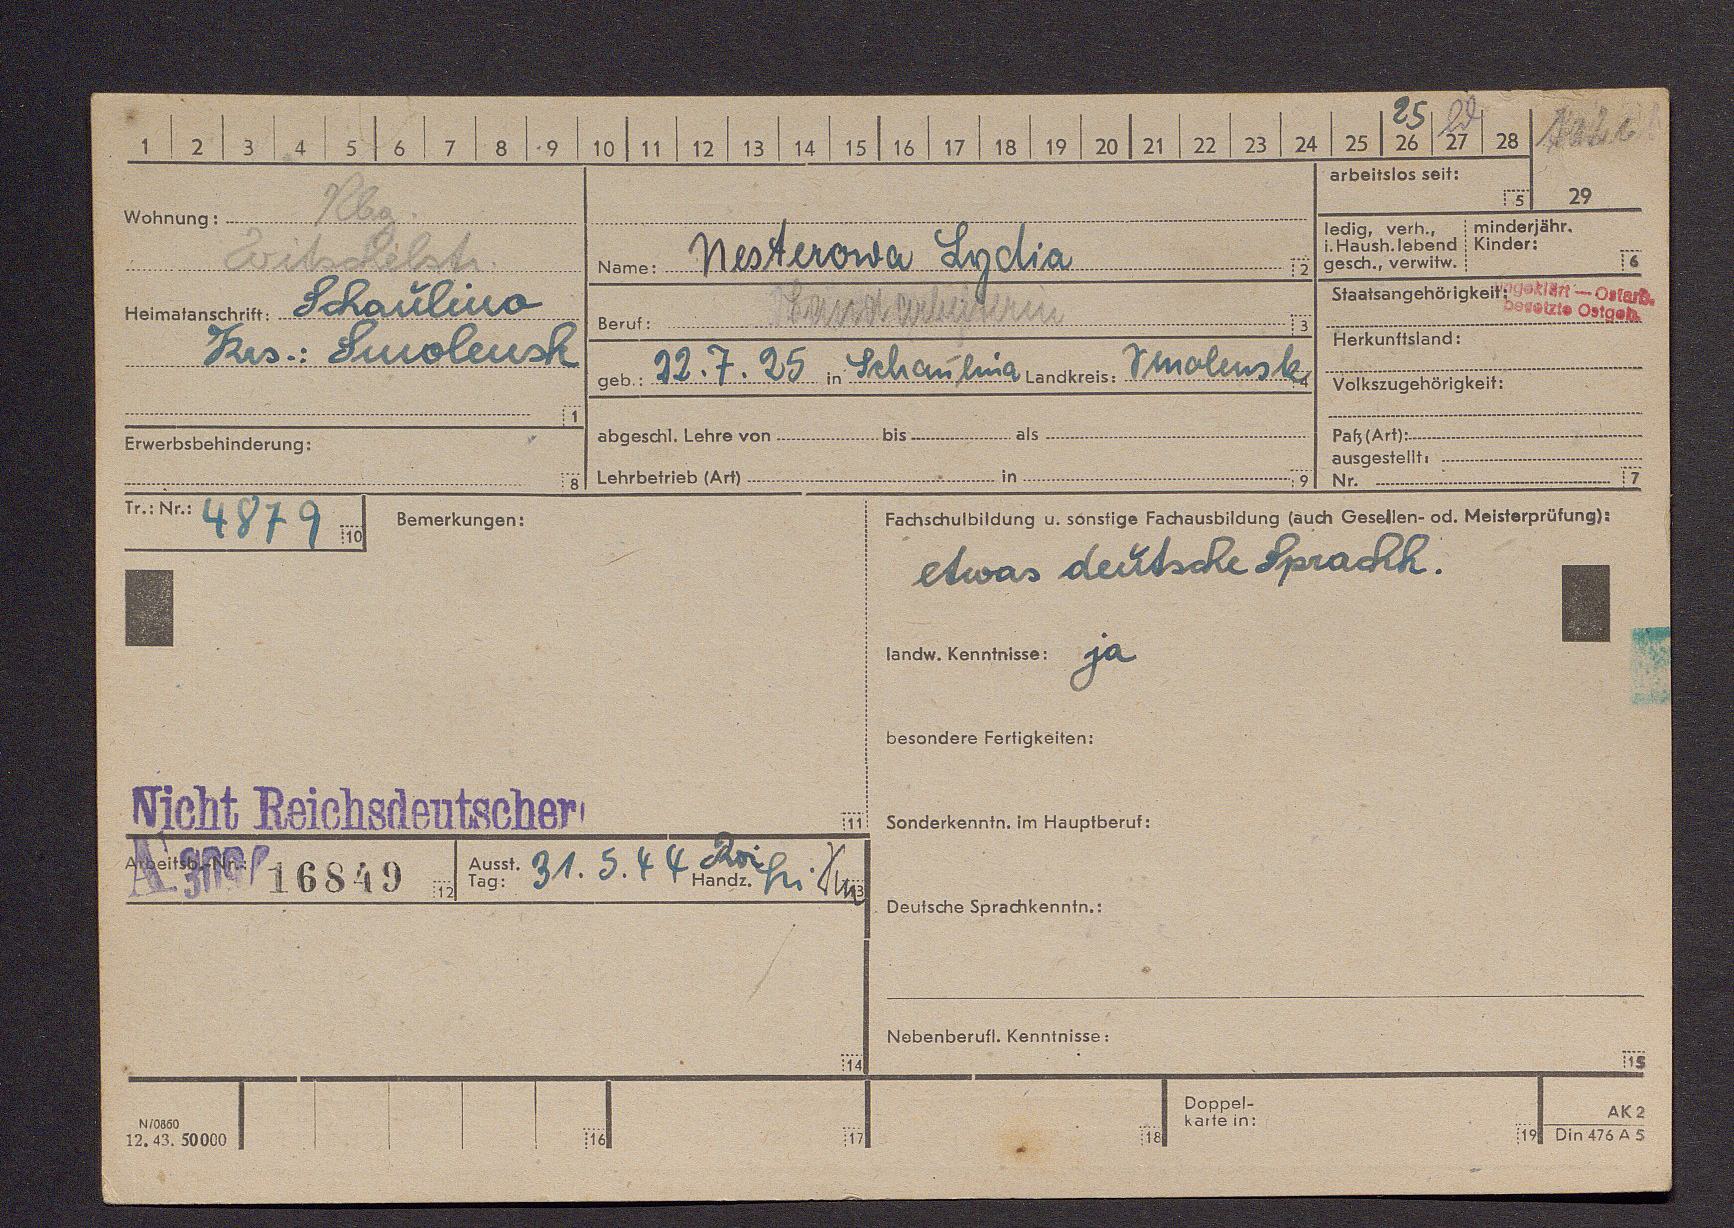 25
1 2 3 4 5 6 7 8 9 10 11 12 13 14 15 16 17 18 19 20 21 22 23 24 25 26 27 28 29
arbeitslos seit: 5
Wohnung:
Heimatanschrift: Schaulino
Krs.: Smolensk
1
Erwerbsbehinderung:
8
Name: Nesterowa Lydia 2
Beruf: 3
geb.: 22.7.25 in Schaulina Landkreis: Smolensk 4
abgeschl. Lehre von bis als
Lehrbetrieb (Art) in 9
ledig, verh., minderjähr.
i. Haush. lebend Kinder:
gesch., verwitw. 6
Staatsangehörigkeit: ungeklärt — Ostarb.
besetzte Ostgeb.
Herkunftsland:
Volkszugehörigkeit:
Paß (Art):
ausgestellt:
Nr. 7
Tr.: Nr.: 4879 10
Bemerkungen:
Nicht Reichsdeutscher
11
Arbeitsb.-Nr.: A 309/ 16849 12
Ausst. Tag: 31.5.44 Handz. 13
14
Fachschulbildung u. sonstige Fachausbildung (auch Gesellen- od. Meisterprüfung):
etwas deutsche Sprachk.
landw. Kenntnisse: ja
besondere Fertigkeiten:
Sonderkenntn. im Hauptberuf:
Deutsche Sprachkenntn.:
Nebenberufl. Kenntnisse:
15
N/0860
12. 43. 50000
16 17 18
Doppel-
karte in: 19
AK 2
Din 476 A 5